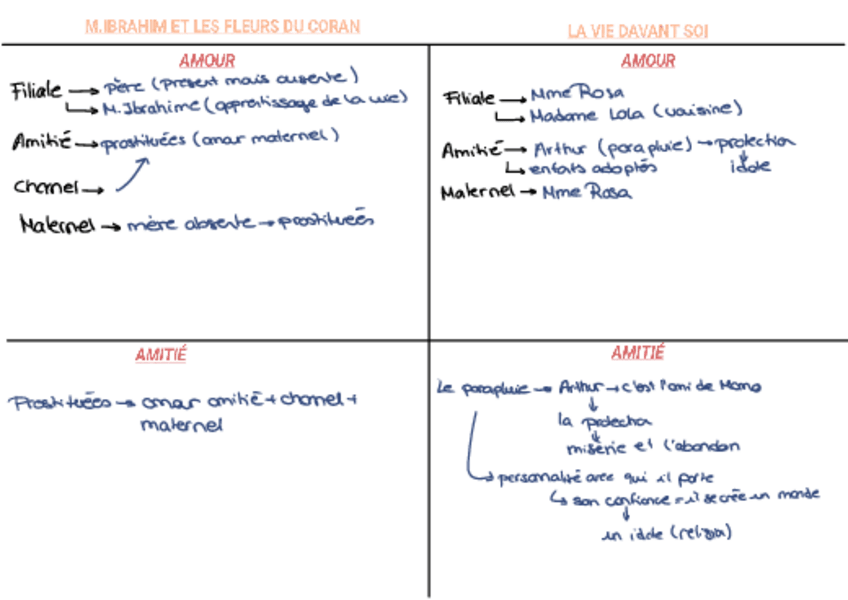 M.IBRAHIM ET LES FLEURS DU CORAN
AMOUR
Filiale → père (présent mais absente)
↳ M. Ibrahime (apprentissage de la vie)
Amitié → prostituées (amar maternel)
Charnel →
Maternel → mère absente → prostituées
LA VIE DAVANT SOI
AMOUR
Filiale → Mme Rosa
↳ Madame Lola (voisine)
Amitié → Arthur (parapluie) → protection
↳ enfats adoptés
idole
Maternel → Mme Rosa
AMITIÉ
Prostituées → amar amitié + charnel +
maternel
AMITIÉ
Le parapluie → Arthur → c'est l'ami de Momo
↓
la protection
↓
misérie et l'abandon
↳ personalité avec qui il parle
↳ son confiance = il se crée un monde
↓
un idole (religion)